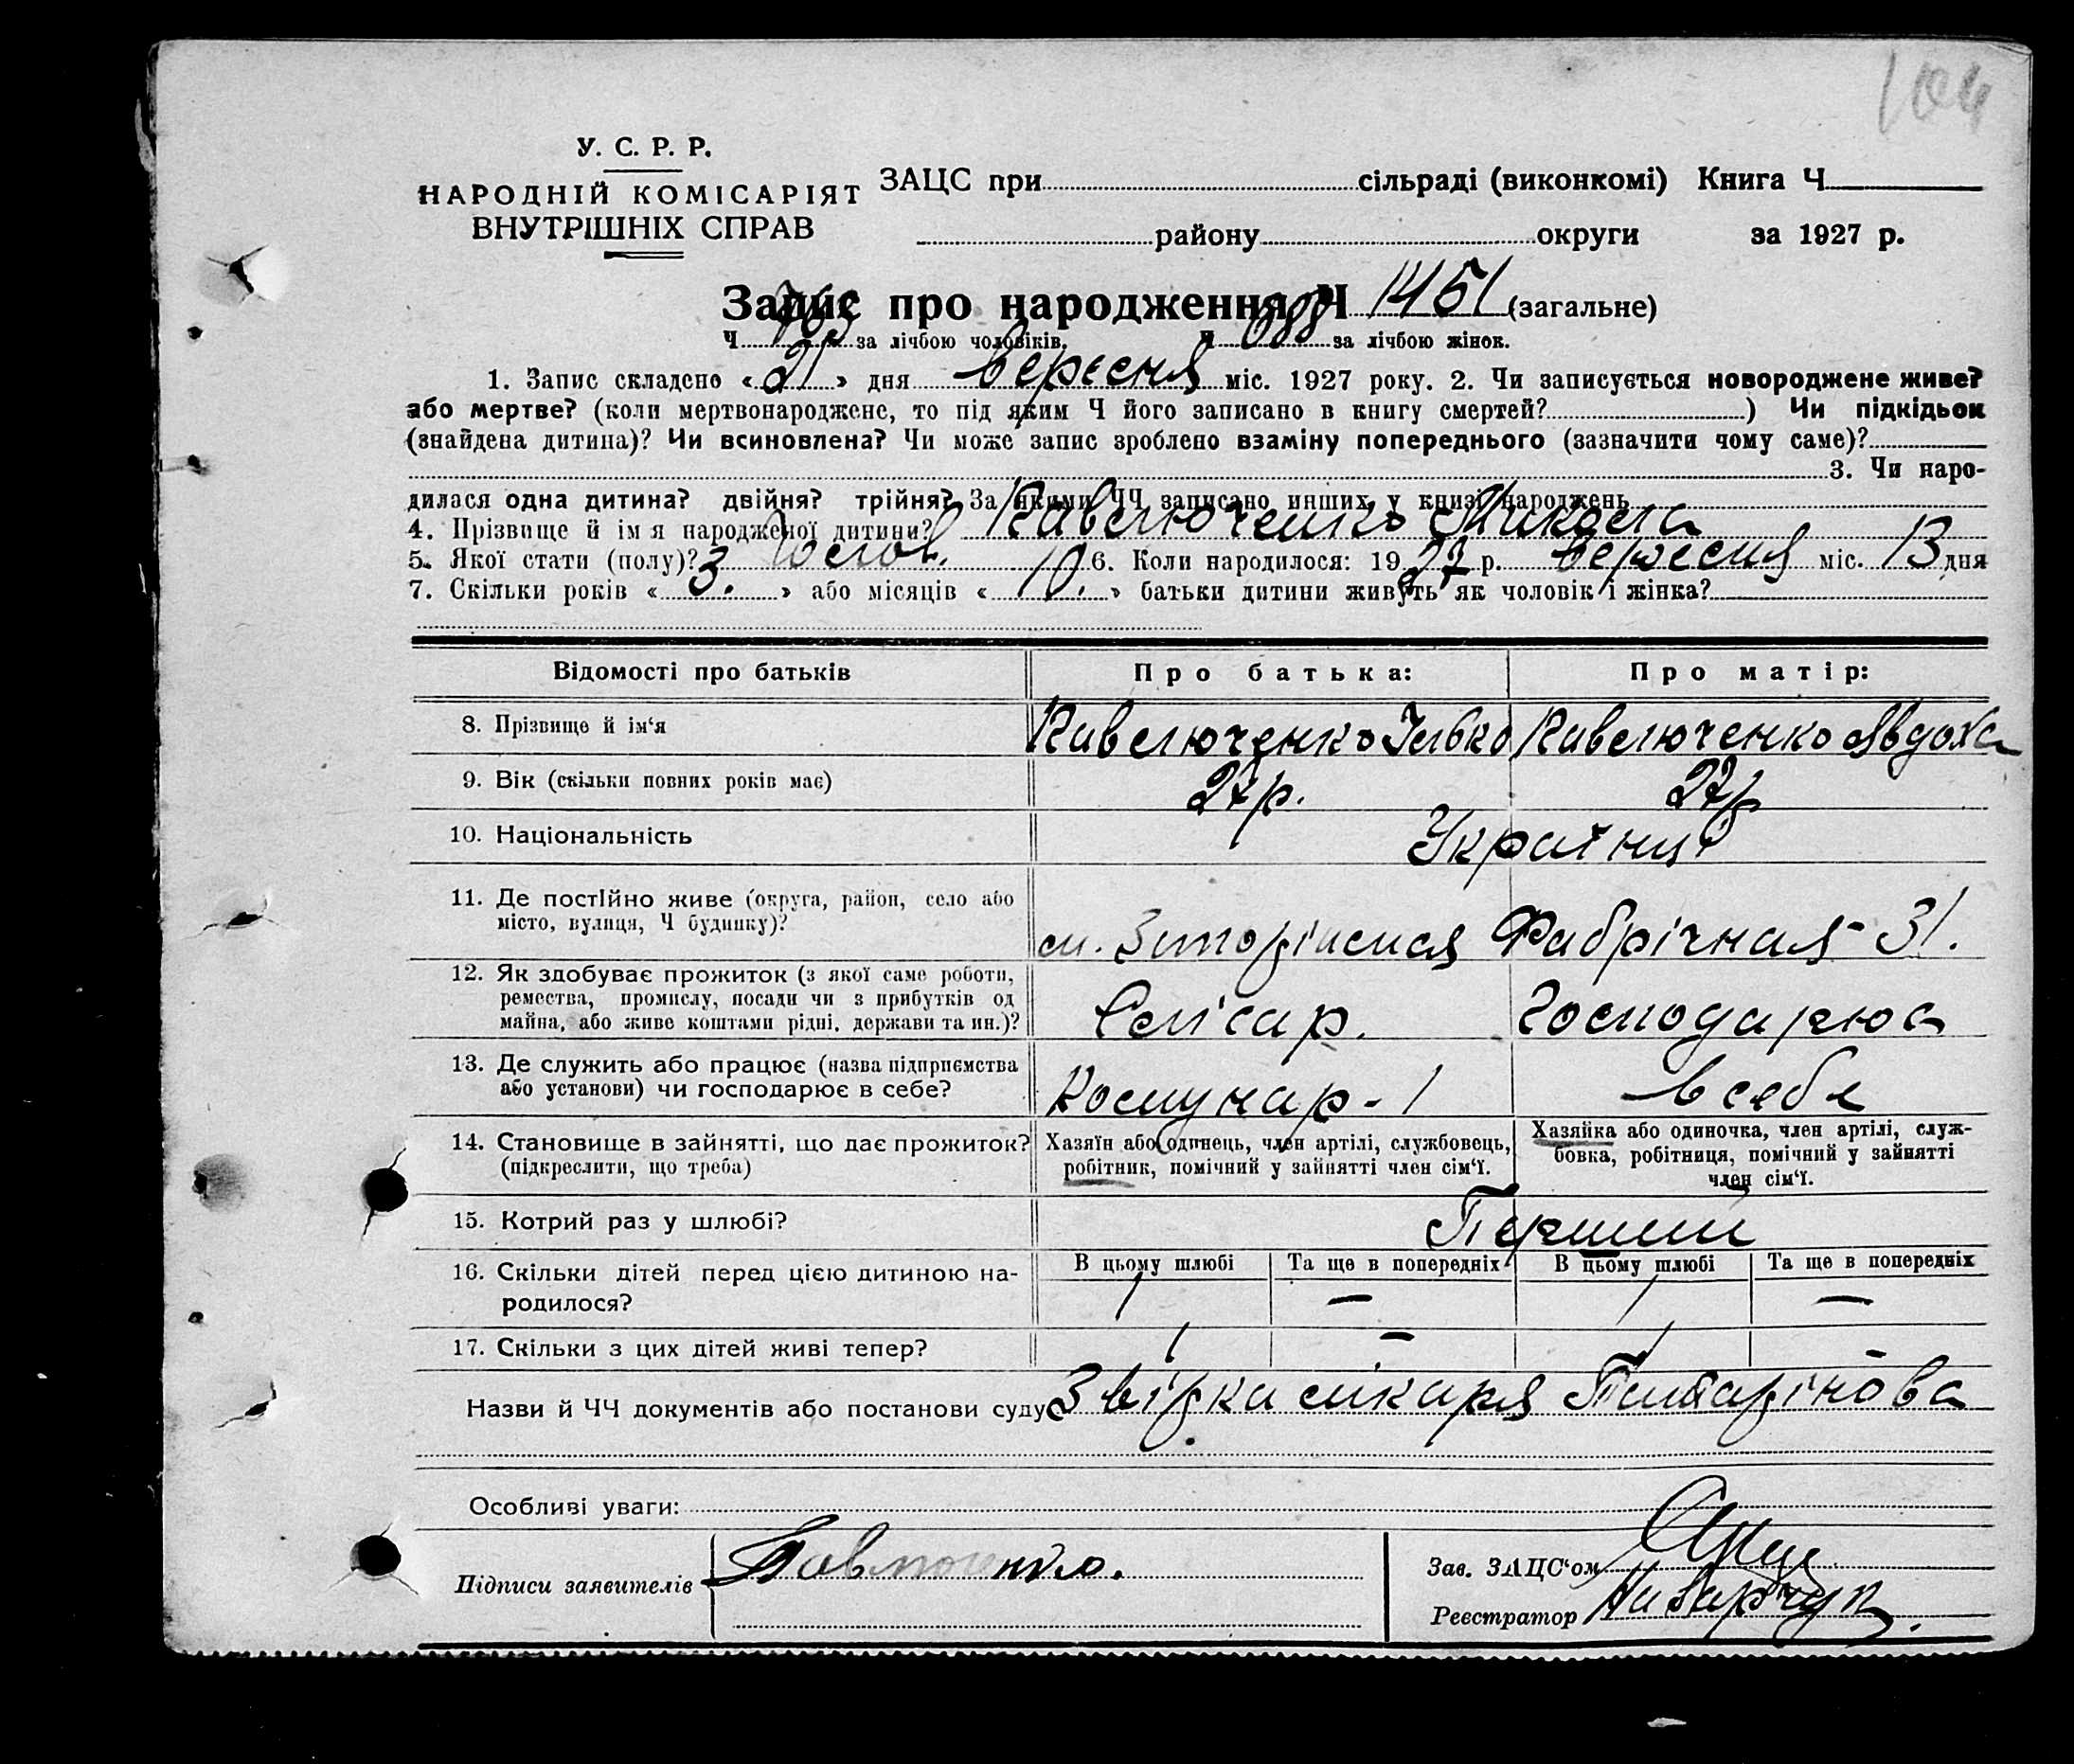 У. С. Р. Р.
НАРОДНІЙ КОМІСАРІЯТ
ВНУТРІШНІХ СПРАВ
ЗАЦС при сільраді (виконкомі) Книга Ч
району округи за 1927 р.
Запис про народження Ч 1451 (загальне)
Ч 763 за лічбою чоловіків. Ч 688 за лічбою жінок.
1. Запис складено « 21 » дня вересня міс. 1927 року. 2. Чи записується новороджене живе?
або мертве? (коли мертвонароджене, то під яким Ч його записано в книгу смертей? ) Чи підкідьок
(знайдена дитина)? Чи всиновлена? Чи може запис зроблено взаміну попереднього (зазначити чому саме)?
3. Чи наро-
дилася одна дитина? двійня? трійня? За якими ЧЧ записано инших у книзі народжень
4. Прізвище й ім я народженої дитини? Кавлюченко Микола
5. Якої стати (полу)? Чолов. 6. Коли народилося: 1927 р. вересня міс. 13 дня
7. Скільки років « 3. » або місяців « 10. » батьки дитини живуть як чоловік і жінка?
Відомості про батьків Про батька: Про матір:
8. Прізвище й ім‘я Кавлюченко Кавлюченко Явдоха
9. Вік (скільки повних років має) 27 р. 27 р
10. Національність Українці
11. Де постійно живе (округа, район, село або
місто, вулиця, Ч будинку)? Фабрічная 31.
12. Як здобуває прожиток (з якої саме роботи,
ремества, промислу, посади чи з прибутків од
майна, або живе коштами рідні, держави та ин.)? Слісар. Господарює
13. Де служить або працює (назва підприємства
або установи) чи господарює в себе? Комунар - 1 в себе
14. Становище в зайнятті, що дає прожиток?
(підкреслити, що треба)
Хазяїн або одинець, член артілі, службовець,
робітник, помічний у зайнятті член сім‘ї.
Хазяйка або одиночка, член артілі, служ-
бовка, робітниця, помічний у зайнятті
член сім‘ї.
15. Котрий раз у шлюбі? Перший
В цьому шлюбі Та ще в попередніх В цьому шлюбі Та ще в попередніх
16. Скільки дітей перед цією дитиною на-
родилося? 1 — 1 —
17. Скільки з цих дітей живі тепер? 1 — 1 —
Назви й ЧЧ документів або постанови суду Звідка лікаря
Особливі уваги:
Підписи заявителів
Зав. ЗАЦС‘ом
Реєстратор